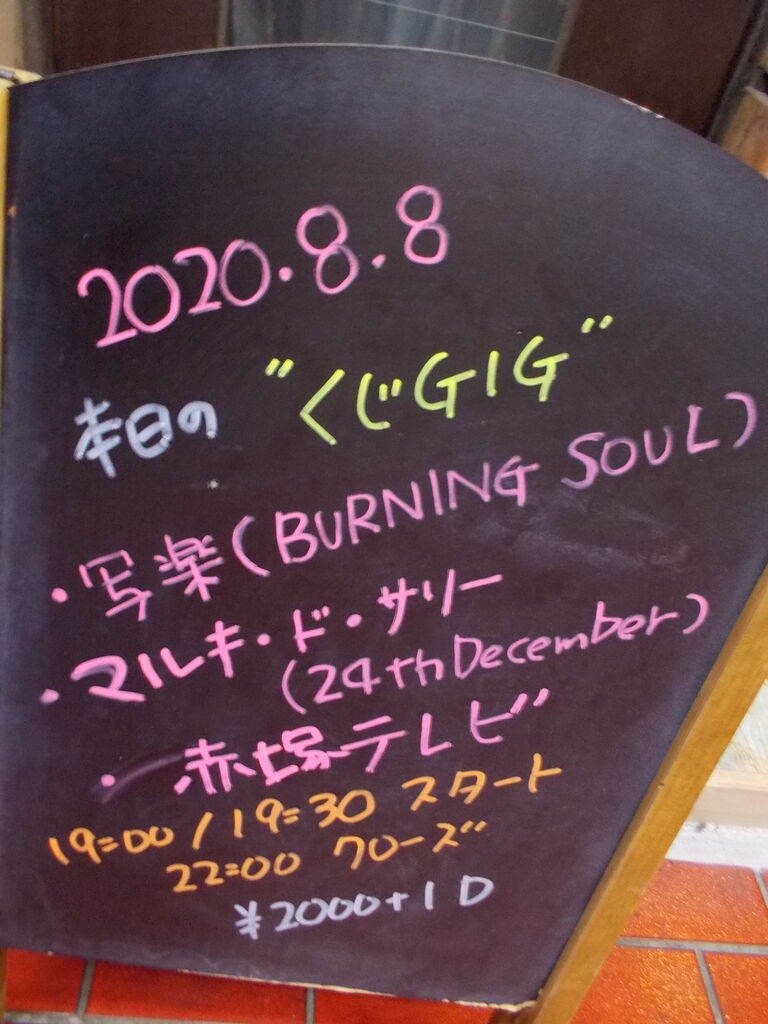 2020.8.8
本日の "くじGIG"
・写楽(BURNING SOUL)
・マルキ・ド・サリー
(24th December)
・赤塚テレビ
19:00/19:30 スタート
22:00 クローズ
¥2000+1D